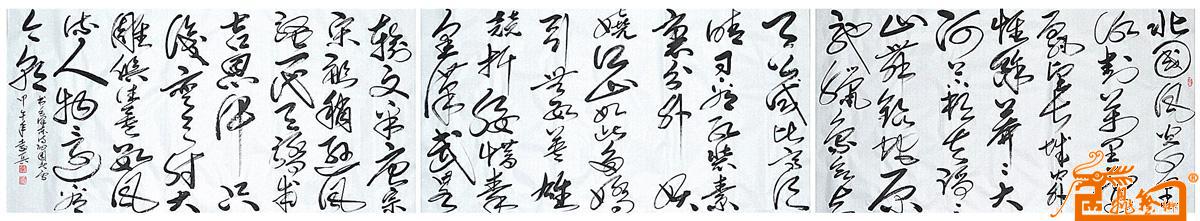 北國风光千里
冰封万里雪
飘望长城内外
惟余莽々大
河上下顿失滔々
山舞银蛇原
驰蜡象欲与
天公试比高须
晴日看红装素
裹分外妖
娆江山如此多娇
引无数英雄
竞折腰惜秦
皇汉武略
输文采唐宗
宋祖稍逊风
骚一代天骄成
吉思汗只
识弯弓射大
雕俱往矣数风
流人物还看
今朝
甲午年